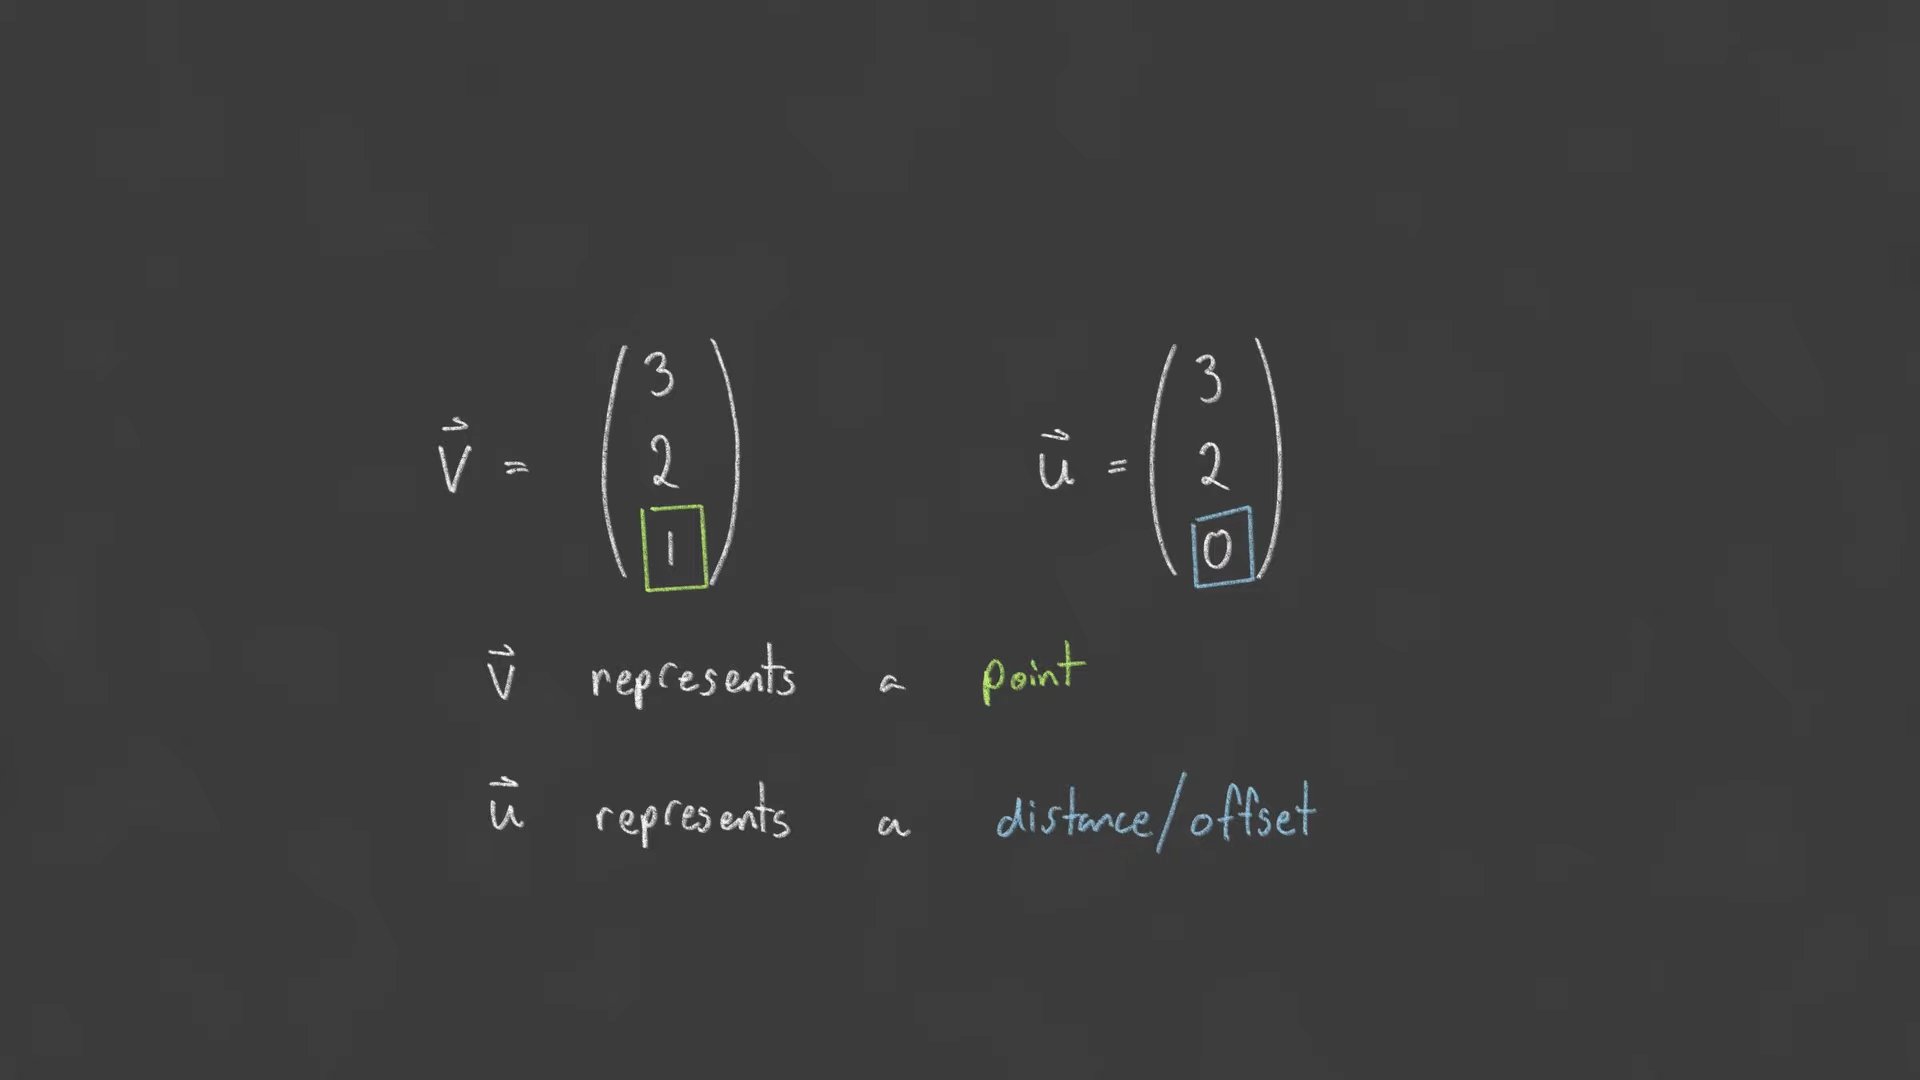 v⃗ = (3 2 1) u⃗ = (3 2 0)
v⃗ represents a point
u⃗ represents a distance/offset